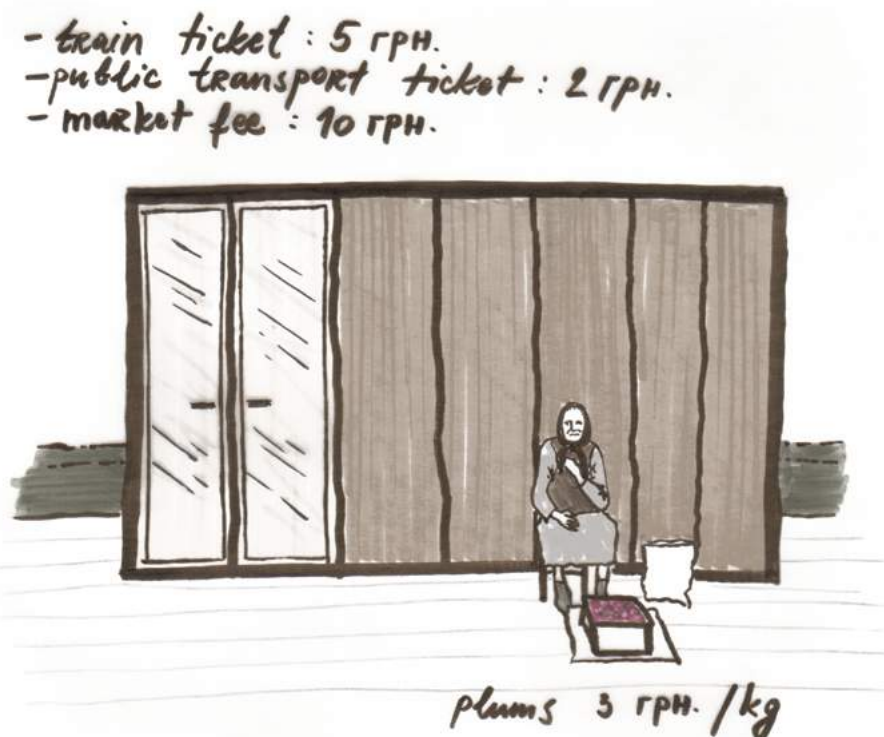 - train ticket : 5 грн.
- public transport ticket : 2 грн.
- market fee : 10 грн.
plums 3 грн. / kg